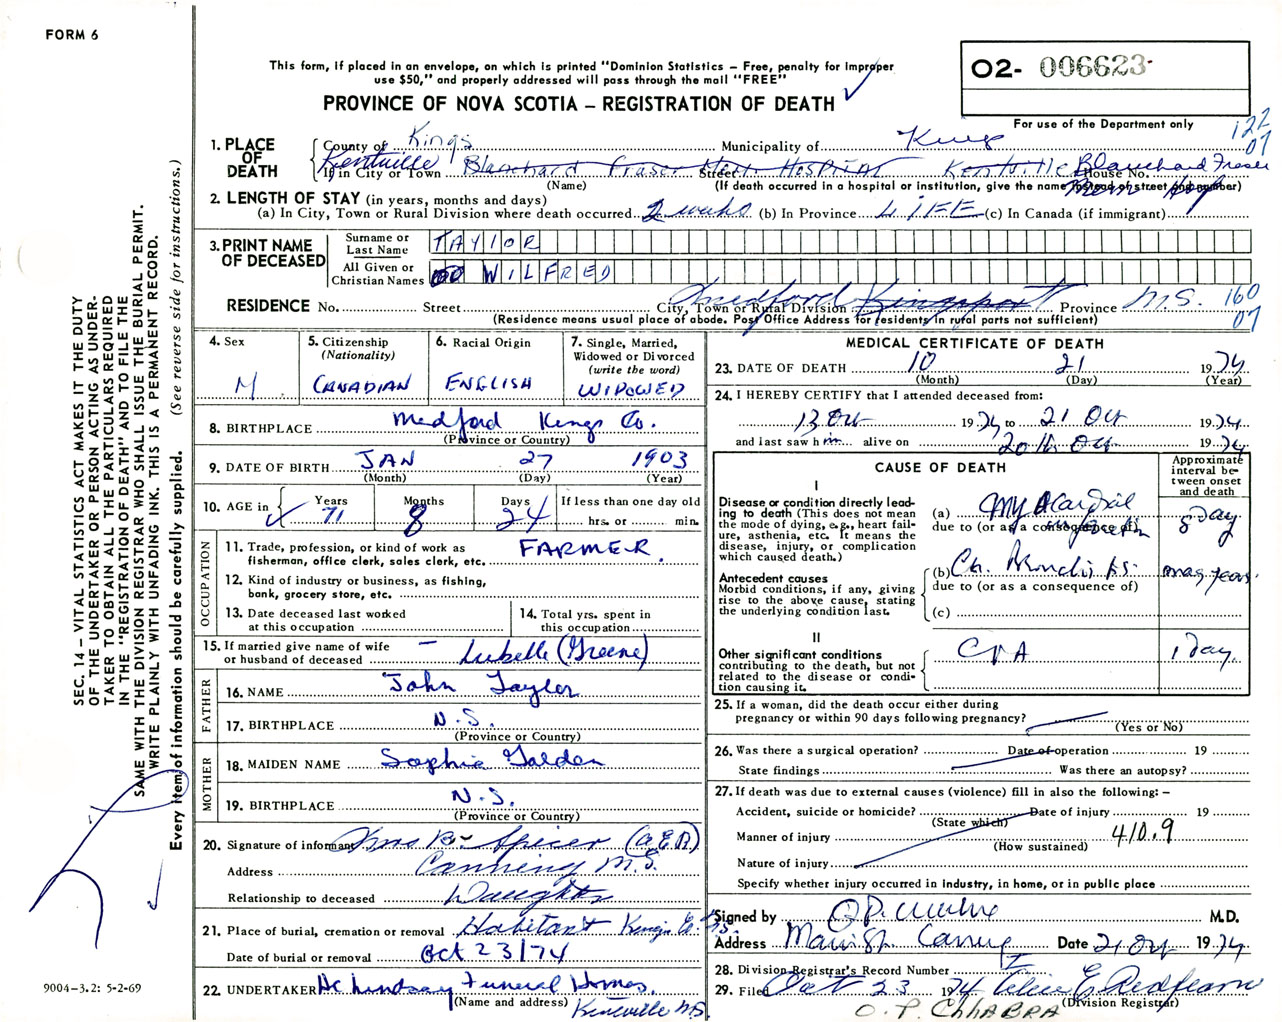 FORM 6
This form, if placed in an envelope, on which is printed "Dominion Statistics – Free, penalty for improper
use $50," and properly addressed will pass through the mail "FREE"
PROVINCE OF NOVA SCOTIA – REGISTRATION OF DEATH
O2- 006623
For use of the Department only
122
07
1. PLACE OF DEATH
County of Kings Municipality of Kings
Kentville Blanchard Fraser Mem Hospital Kentville Blanchard Fraser
If in City or Town Street House No.
Mem Hosp
(Name) (If death occurred in a hospital or institution, give the name instead of street and number)
2. LENGTH OF STAY (in years, months and days)
(a) In City, Town or Rural Division where death occurred 2 weeks (b) In Province LIFE (c) In Canada (if immigrant)
3. PRINT NAME OF DECEASED
Surname or Last Name TAYLOR
All Given or Christian Names WILFRED
RESIDENCE No. Street City, Town or Rural Division Medford Kingsport Province N.S. 160
07
(Residence means usual place of abode. Post Office Address for residents in rural parts not sufficient)
4. Sex M
5. Citizenship (Nationality) CANADIAN
6. Racial Origin ENGLISH
7. Single, Married, Widowed or Divorced (write the word) WIDOWED
8. BIRTHPLACE Medford Kings Co.
(Province or Country)
9. DATE OF BIRTH JAN 27 1903
(Month) (Day) (Year)
10. AGE in Years 71 Months 8 Days 24 If less than one day old
hrs. or min.
OCCUPATION
11. Trade, profession, or kind of work as
fisherman, office clerk, sales clerk, etc. FARMER.
12. Kind of industry or business, as fishing,
bank, grocery store, etc.
13. Date deceased last worked
at this occupation
14. Total yrs. spent in
this occupation
15. If married give name of wife
or husband of deceased – Lubelle (Greene)
FATHER
16. NAME John Taylor
17. BIRTHPLACE N.S.
(Province or Country)
MOTHER
18. MAIDEN NAME Sophie Golden
19. BIRTHPLACE N.S.
(Province or Country)
20. Signature of informant Mrs B Spicer (A.E.R)
Address Canning N.S.
Relationship to deceased Daughter
21. Place of burial, cremation or removal Habitant Kings Co. N.S.
Date of burial or removal Oct 23/74
22. UNDERTAKER HC Lindsay Funeral Homes.
(Name and address) Kentville N.S
MEDICAL CERTIFICATE OF DEATH
23. DATE OF DEATH 10 21 1974
(Month) (Day) (Year)
24. I HEREBY CERTIFY that I attended deceased from:
13 Oct 1974 to 21 Oct 1974
and last saw him alive on 20th Oct 1974
CAUSE OF DEATH
Approximate interval between onset and death
I
Disease or condition directly lead-
ing to death (This does not mean
the mode of dying, e.g., heart fail-
ure, asthenia, etc. It means the
disease, injury, or complication
which caused death.)
(a) Myocardial infarction 8 day
due to (or as a consequence of)
Antecedent causes
Morbid conditions, if any, giving
rise to the above cause, stating
the underlying condition last.
(b) Ch. Bronchitis. many years
due to (or as a consequence of)
(c)
II
Other significant conditions
contributing to the death, but not
related to the disease or condi-
tion causing it.
CVA 1 Day
25. If a woman, did the death occur either during
pregnancy or within 90 days following pregnancy?
(Yes or No)
26. Was there a surgical operation? Date of operation 19
State findings Was there an autopsy?
27. If death was due to external causes (violence) fill in also the following: –
Accident, suicide or homicide? Date of injury 19
(State which)
Manner of injury 410.9
(How sustained)
Nature of injury
Specify whether injury occurred in industry, in home, or in public place
Signed by M.D.
Address Main St. Canning Date 21 Oct 1974
28. Division Registrar's Record Number
29. Filed Oct 23 1974 Alice E Redfearn
(Division Registrar)
O. P. CHHABRA
SEC. 14 – VITAL STATISTICS ACT MAKES IT THE DUTY
OF THE UNDERTAKER OR PERSON ACTING AS UNDER-
TAKER TO OBTAIN ALL THE PARTICULARS REQUIRED
IN THE "REGISTRATION OF DEATH" AND TO FILE THE
SAME WITH THE DIVISION REGISTRAR WHO SHALL ISSUE THE BURIAL PERMIT.
WRITE PLAINLY WITH UNFADING INK. THIS IS A PERMANENT RECORD.
Every item of information should be carefully supplied. (See reverse side for instructions.)
9004-3.2: 5-2-69